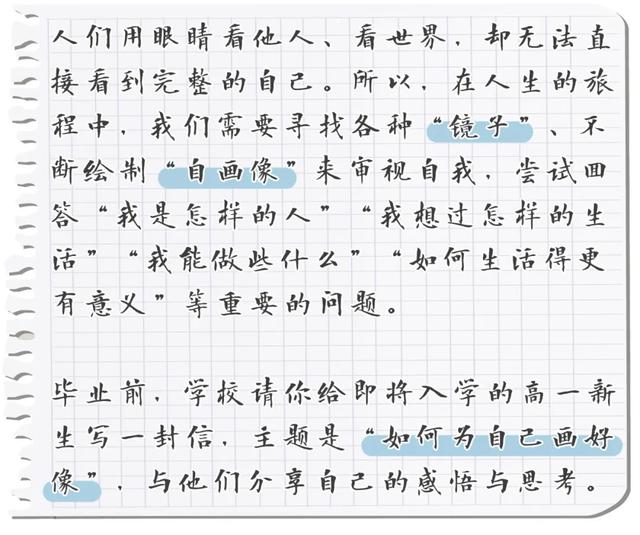 人们用眼睛看他人、看世界，却无法直
接看到完整的自己。所以，在人生的旅
程中，我们需要寻找各种“镜子”、不
断绘制“自画像”来审视自我，尝试回
答“我是怎样的人”“我想过怎样的生
活”“我能做些什么”“如何生活得更
有意义”等重要的问题。
毕业前，学校请你给即将入学的高一新
生写一封信，主题是“如何为自己画好
像”，与他们分享自己的感悟与思考。